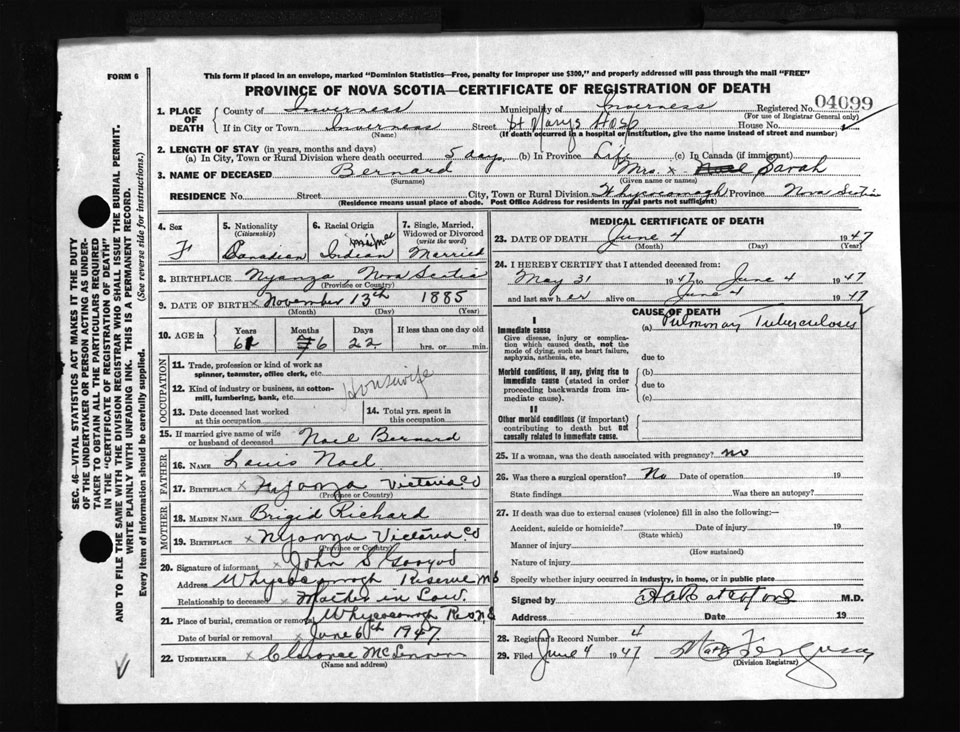 FORM 6
This form if placed in an envelope, marked "Dominion Statistics—Free, penalty for improper use $300," and properly addressed will pass through the mail "FREE"
PROVINCE OF NOVA SCOTIA—CERTIFICATE OF REGISTRATION OF DEATH
1. PLACE OF DEATH
County of Inverness Municipality of Inverness Registered No. 04099
(For use of Registrar General only)
If in City or Town Inverness Street St Marys Hosp House No.
(Name) (If death occurred in a hospital or institution, give the name instead of street and number)
2. LENGTH OF STAY (in years, months and days)
(a) In City, Town or Rural Division where death occurred 5 days (b) In Province Life (c) In Canada (if immigrant)
3. NAME OF DECEASED Bernard Mrs. x Noel Sarah
(Surname) (Given name or names)
RESIDENCE No. Street City, Town or Rural Division Whycocomagh Province Nova Scotia
(Residence means usual place of abode. Post Office Address for residents in rural parts not sufficient)
4. Sex F
5. Nationality (Citizenship) Canadian
6. Racial Origin Indian
7. Single, Married, Widowed or Divorced (write the word) Married
8. BIRTHPLACE Nyanza Nova Scotia
(Province or Country)
9. DATE OF BIRTH x November 13th 1885
(Month) (Day) (Year)
10. AGE in Years Months Days If less than one day old
6 22 hrs. or min.
OCCUPATION
11. Trade, profession or kind of work as spinner, teamster, office clerk, etc.
12. Kind of industry or business, as cotton-mill, lumbering, bank, etc.
Housewife
13. Date deceased last worked at this occupation
14. Total yrs. spent in this occupation
15. If married give name of wife or husband of deceased Noel Bernard
FATHER
16. NAME Louis Noel
17. BIRTHPLACE x Nyanza Victoria Co
(Province or Country)
MOTHER
18. MAIDEN NAME Brigid Richard
19. BIRTHPLACE x Nyanza Victoria Co
(Province or Country)
20. Signature of informant x John S Googoo
Address Whycocomagh Reserve NS
Relationship to deceased x Mother in Law.
21. Place of burial, cremation or removal Whycocomagh Res NS
Date of burial or removal x June 6th 1947.
22. UNDERTAKER x Clarence McLennan
(Name and address)
MEDICAL CERTIFICATE OF DEATH
23. DATE OF DEATH June 4 1947
(Month) (Day) (Year)
24. I HEREBY CERTIFY that I attended deceased from:
May 31 1947 to June 4 1947
and last saw her alive on June 4 1947
CAUSE OF DEATH
I
Immediate cause (a) Pulmonary Tuberculosis
Give disease, injury or complication which caused death, not the mode of dying, such as heart failure, asphyxia, asthenia, etc.
due to
Morbid conditions, if any, giving rise to immediate cause (stated in order proceeding backwards from immediate cause).
(b)
due to
(c)
II
Other morbid conditions (if important) contributing to death but not causally related to immediate cause.
25. If a woman, was the death associated with pregnancy? no
26. Was there a surgical operation? No Date of operation 19
State findings Was there an autopsy?
27. If death was due to external causes (violence) fill in also the following:—
Accident, suicide or homicide? Date of injury 19
(State which)
Manner of injury
(How sustained)
Nature of injury
Specify whether injury occurred in industry, in home, or in public place
Signed by M.D.
Address Date 19
28. Registrar's Record Number 4
29. Filed June 4 1947
(Division Registrar)
SEC. 46—VITAL STATISTICS ACT MAKES IT THE DUTY
OF THE UNDERTAKER OR PERSON ACTING AS UNDERTAKER TO OBTAIN ALL THE PARTICULARS REQUIRED
IN THE "CERTIFICATE OF REGISTRATION OF DEATH"
AND TO FILE THE SAME WITH THE DIVISION REGISTRAR WHO SHALL ISSUE THE BURIAL PERMIT.
WRITE PLAINLY WITH UNFADING INK. THIS IS A PERMANENT RECORD.
Every item of information should be carefully supplied. (See reverse side for instructions.)